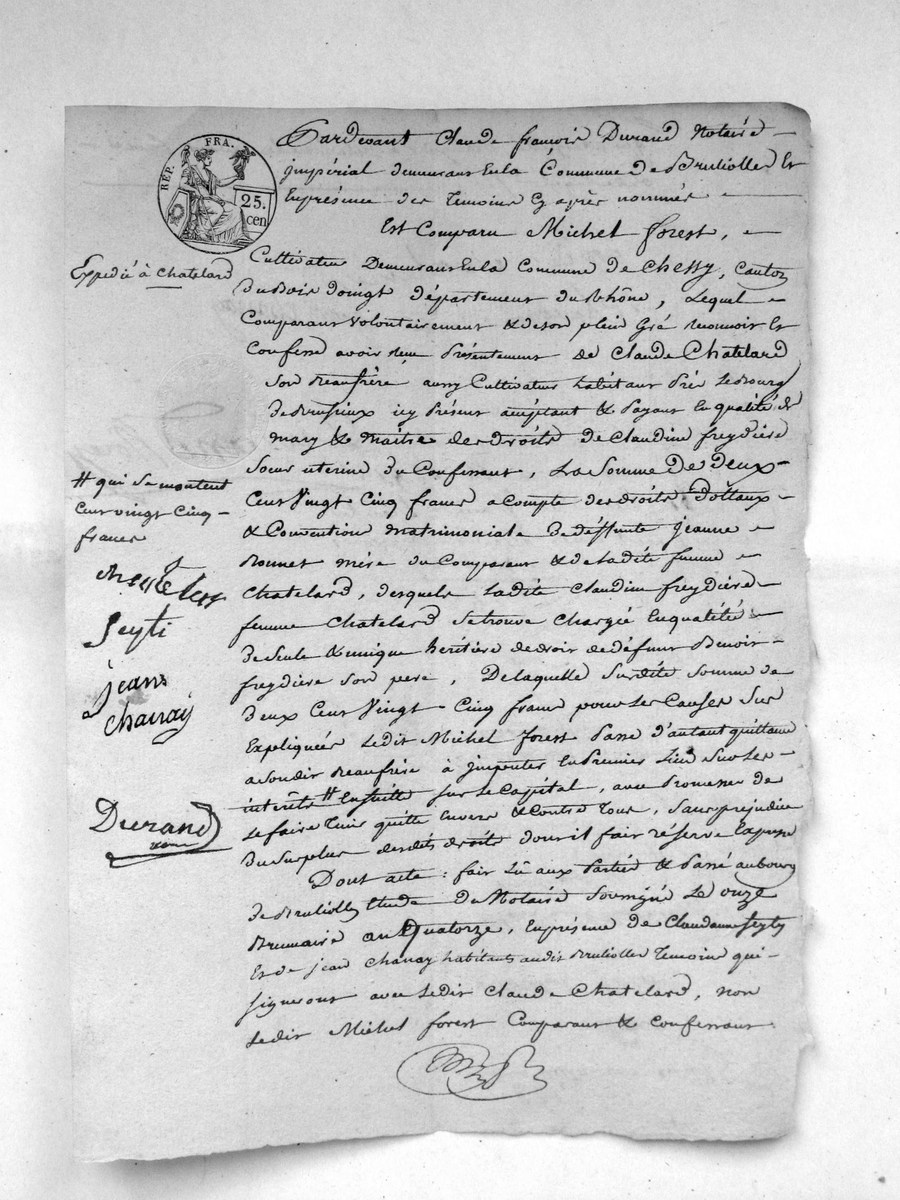 RÉP. FRA.
25.
cen
Pardevant Claude françois Durand Notaire
jmpérial demeurant En la Commune de Brulliolles Et
En présence des Temoins Cy après nommés
Est Comparu Michel forest,
Cultivateur Demeurant En la Commune de Chessy, Canton
Du Bois Doingt Département du Rhône, Lequel
Comparant Volontairement & de son plein Gré reconnoit Et
Confesse avoir reçu Présentement de Claude Chatelard
Son Beaufrère aussy Cultivateur habitant Près Le Bourg
de Brussieux icy Présent acceptant & Payant En qualité de
mary & maitre des droits de Claudine freydière
Soeur uterine du Confessant, La Somme De Deux
Cent Vingt Cinq francs a Compte des droits Dottaux
& Convention matrimoniale De deffunte jeanne
Bonnet mère du Comparant & de Ladite femme
Chatelard, desquels Ladite Claudine freydière
femme Chatelard Se trouve Chargée En qualité
De Seule & unique héritière de droit de défunt Benoit
freydière Son pere, De laquelle Susdite Somme de
Deux Cent Vingt Cinq francs pour Les Causes Sus
Expliquées Ledit Michel forest Passe D'autant quittance
a Soudit Beaufrère à jmputer En Premier Lieu Sur Les
interêts # Ensuitte sur Le Capital, avec Promesse de
Le faire Tenir quitte Envers & Contre Tous, Sans préjudice
Du Surplus desdits droits dont il fait réserve Expresse
Dont acte : fait Lû aux Parties & Passé au bourg
de Brulliolles Etude Du Notaire Soussigné Le onze
Brumaire an Quatorze, En présence de Claudanne Seyty
Et de jean Chanay habitants audit Brulliolles Temoins qui
Signeront avec Ledit Claude Chatelard, non
Ledit Michel forest Comparant & Confessant
Expedié à Chatelard
# qui se montent
Cent vingt Cinq
francs
Seyti
jean
Chanay
Durand